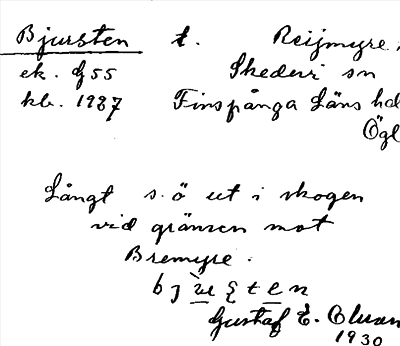 Bjursten t. Reijmyre,
ek. G55 Skedevi sn
kb. 1987 Finspånga läns hd
Ögl
Långt s.ö ut i skogen
vid gränsen mot
Bremyre.
Gustaf E.
1930